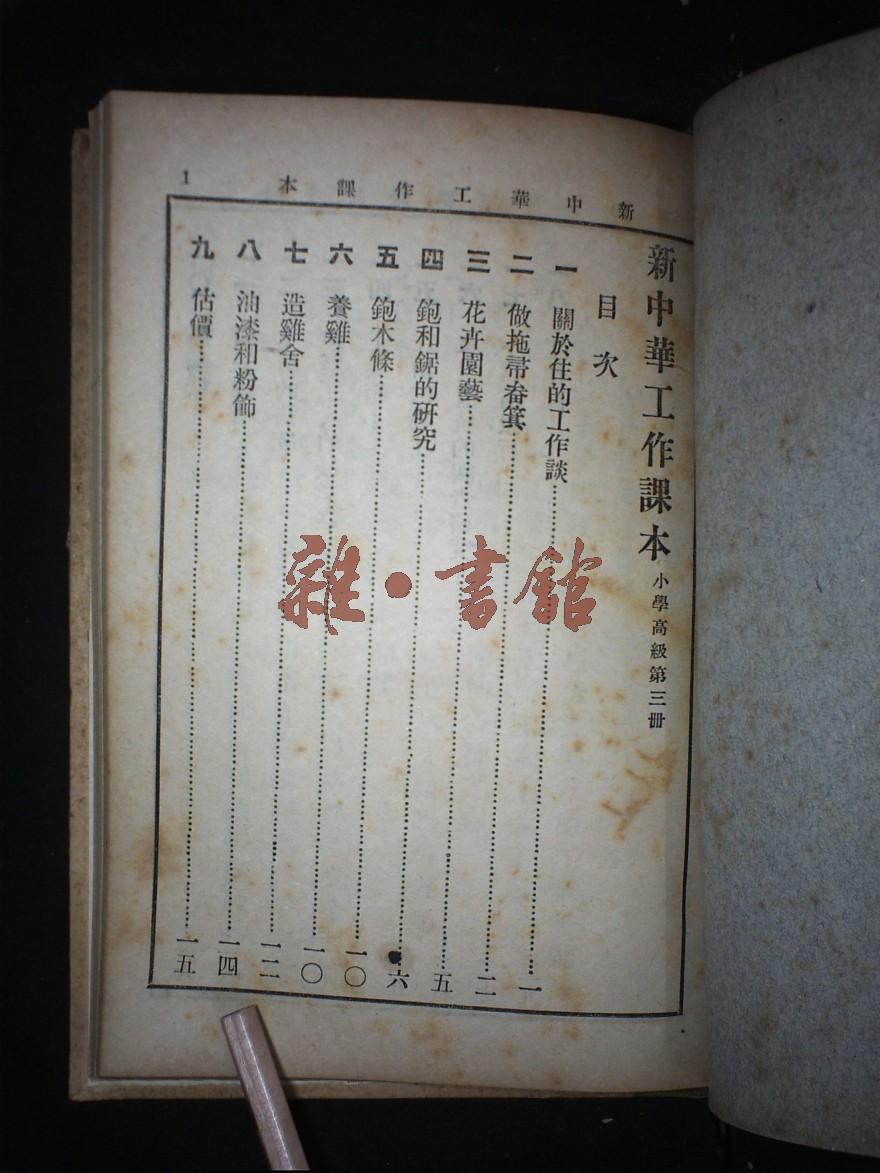 新中華工作課本 1
新中華工作課本 小學高級第三冊
目次
一 關於住的工作談……一
二 做拖帚畚箕……二
三 花卉園藝……五
四 鉋和鋸的研究……六
五 鉋木條……一〇
六 養雞……一〇
七 造雞舍……一二
八 油漆和粉飾……一四
九 估價……一五
雜·書館